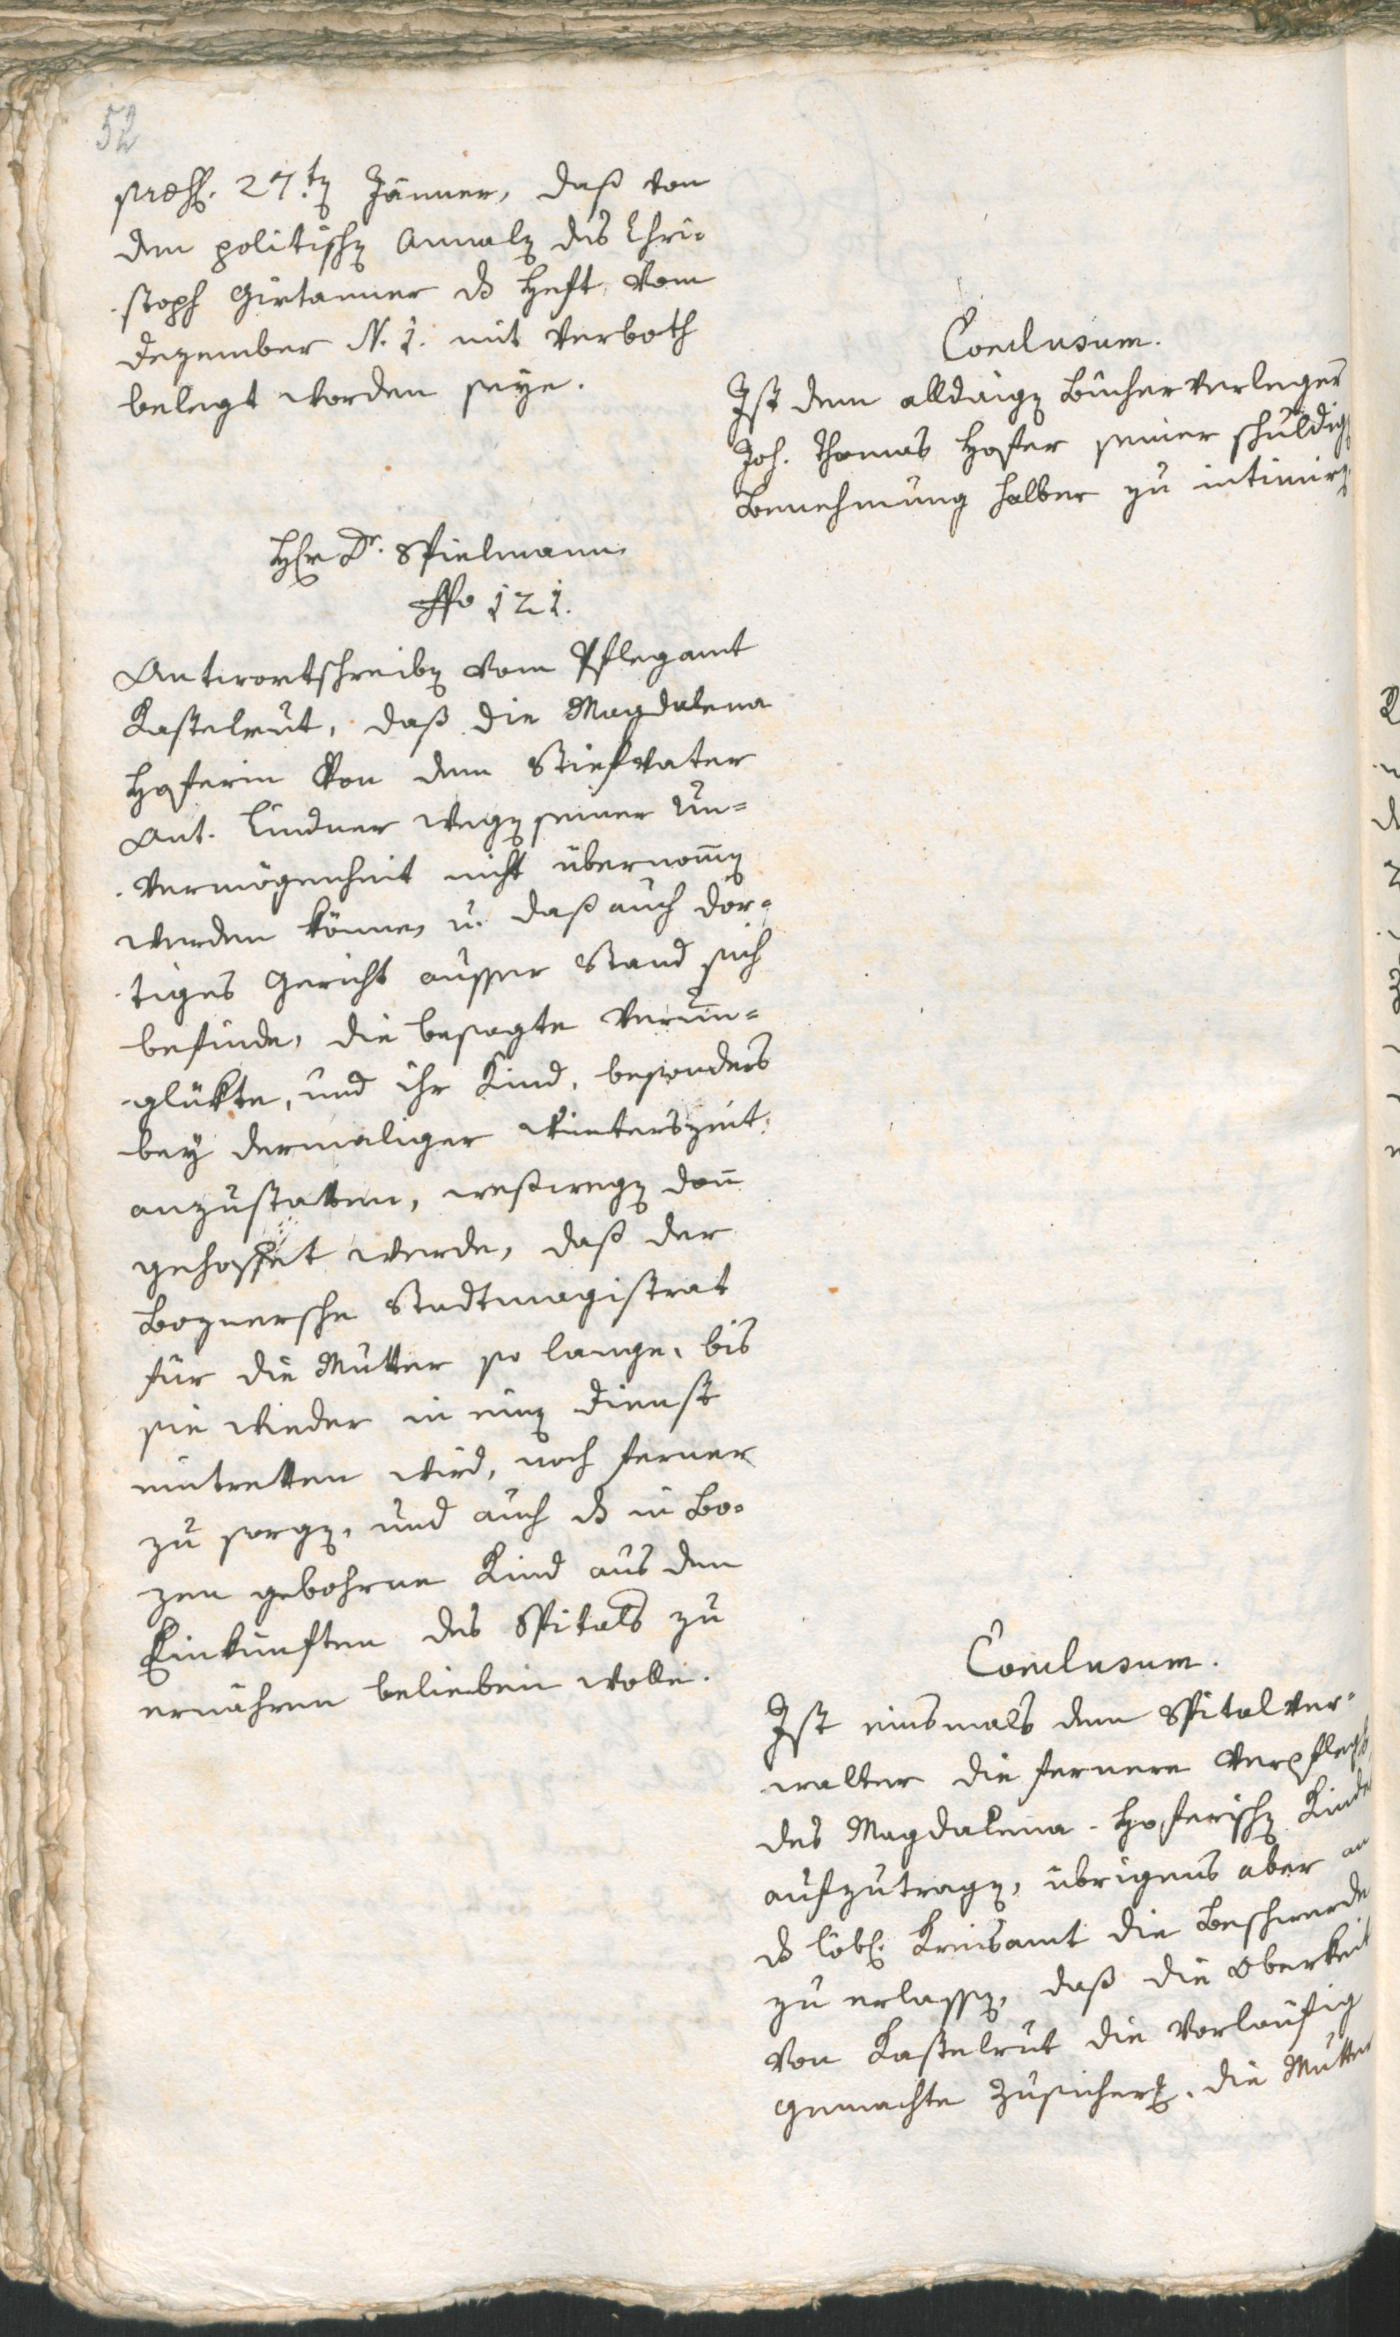 52
præs. 27.ten Jänner, daß von
den politischen Annalen des Chri-
stoph Girtanner das Heft vom
Dezember N. 1. mit Verboth
belegt worden seye.
Conclusum.
Ist dem alldaigen Bücherverleger
Joh. Thomas Hofer seiner schuldigen
Benehmung halber zu intimiren
Hr Dr. Spielmann
No 121.
Antwortschreiben vom Pflegamt
Kastelrut, daß die Magdalena
Hoferin von dem Stiefvater
Ant. Lindner wegen seiner Un-
vermögenheit nicht übernommen
werden könne, u. daß auch dor-
tiges Gericht ausser Stand sich
befinde, die besagte Verun-
glükte, und ihr Kind, besonders
bey dermaliger Winterszeit
anzustatten, weßwegen dann
gehoffet werde, daß der
Boznersche Stadtmagistrat
für die Mutter so lange, bis
sie wieder in einen Dienst
eintretten wird, noch ferner
zu sorgen, und auch das in Bo-
zen gebohrne Kind aus den
Einkünften des Spitals zu
ernähren belieben wolle.
Conclusum.
Ist einsmals dem Spitalver-
walter die fernere Verpflegung
des Magdalena-Hoferischen Kindes
aufzutragen, übrigens aber an
das löbl. Kreisamt die Beschwerde
zu erlassen, daß die Oberkeit
von Kastelrut die vorläufig
gemachte Zusicherung, die Mutter